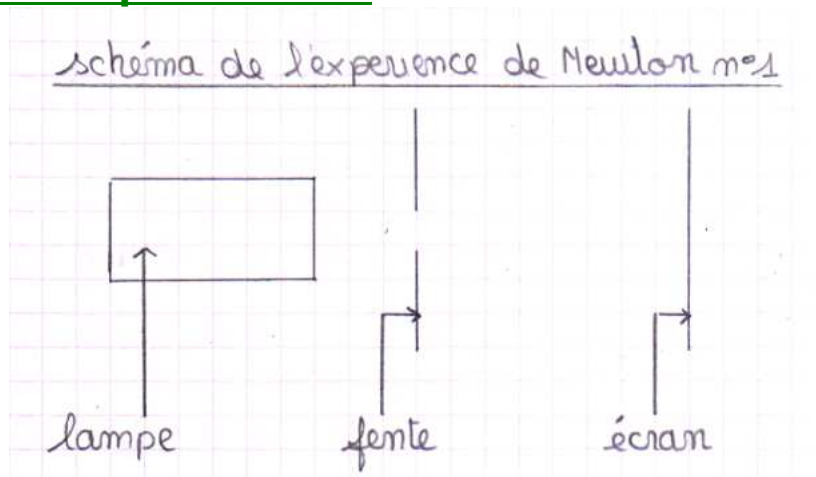 schéma de l'expérience de Newton n°1
lampe
fente
écran